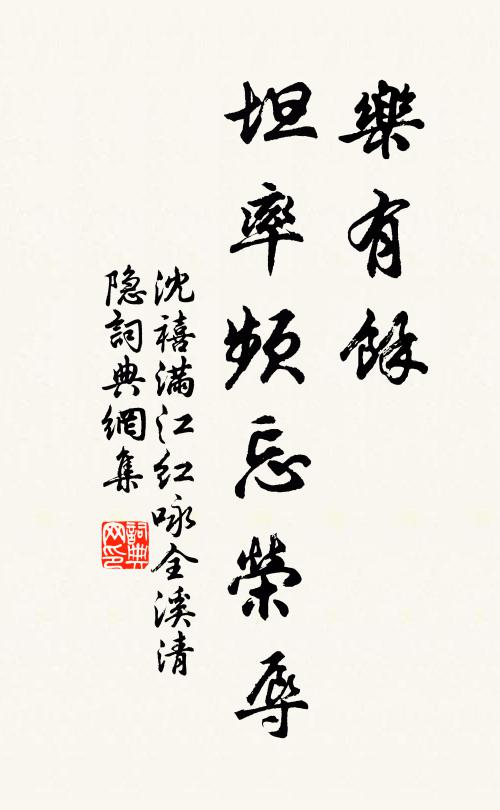 樂有餘
坦率頻忘榮辱
沈禧滿江紅咏全溪清
隐詞典網集
詞典网印